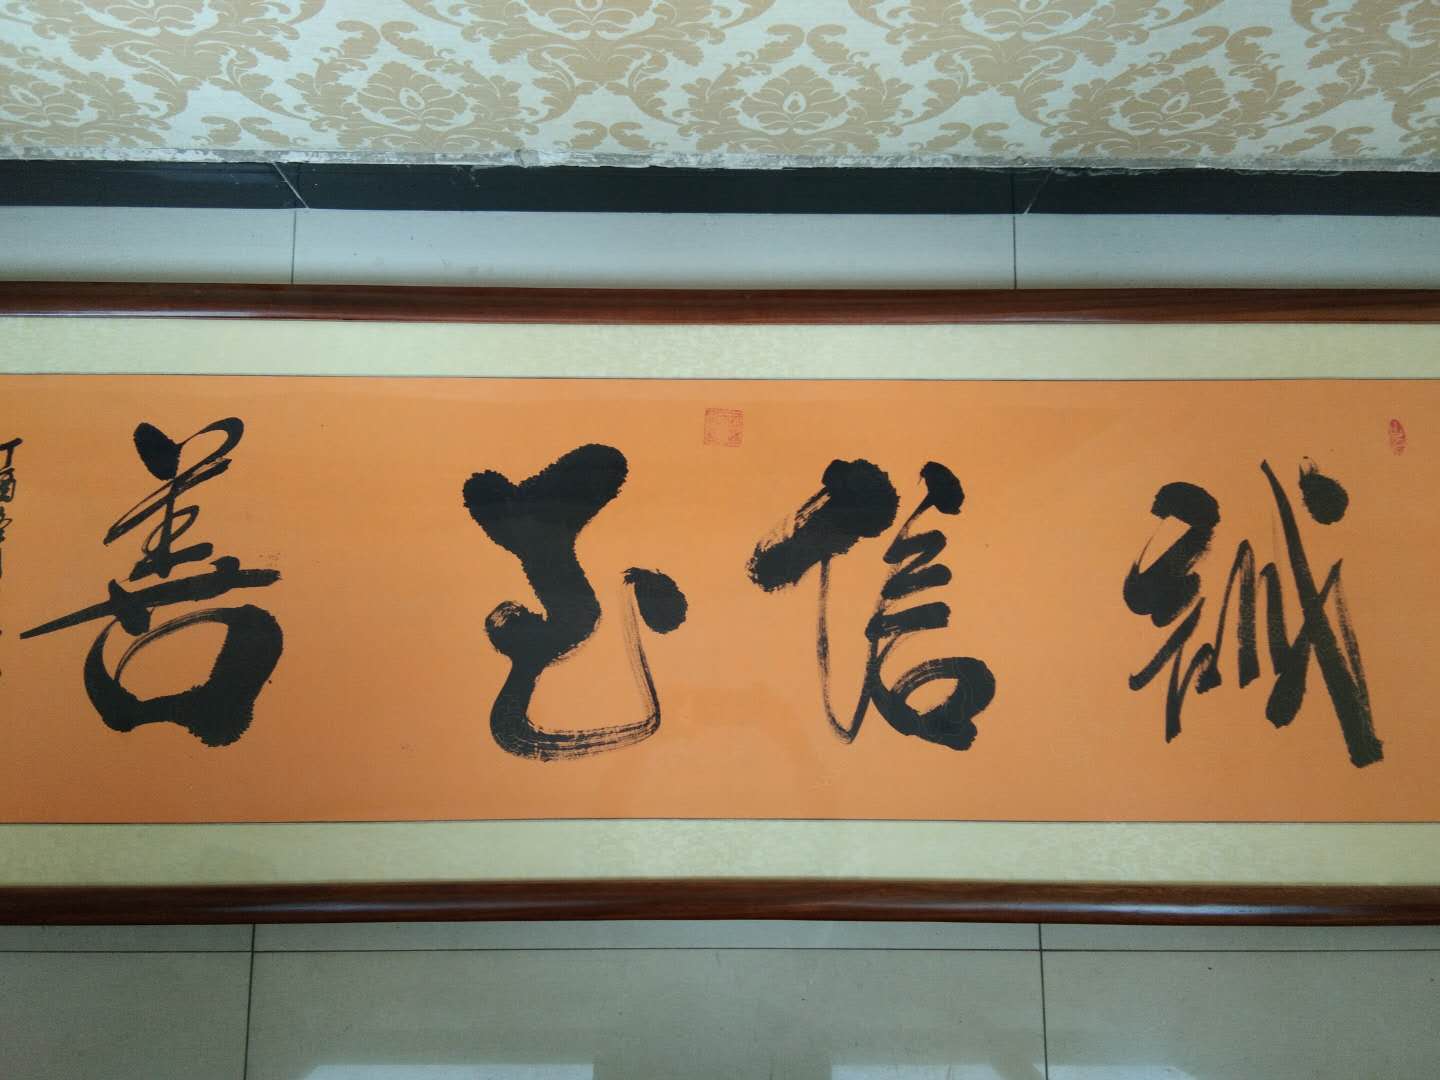 誠信至善
丁酉年